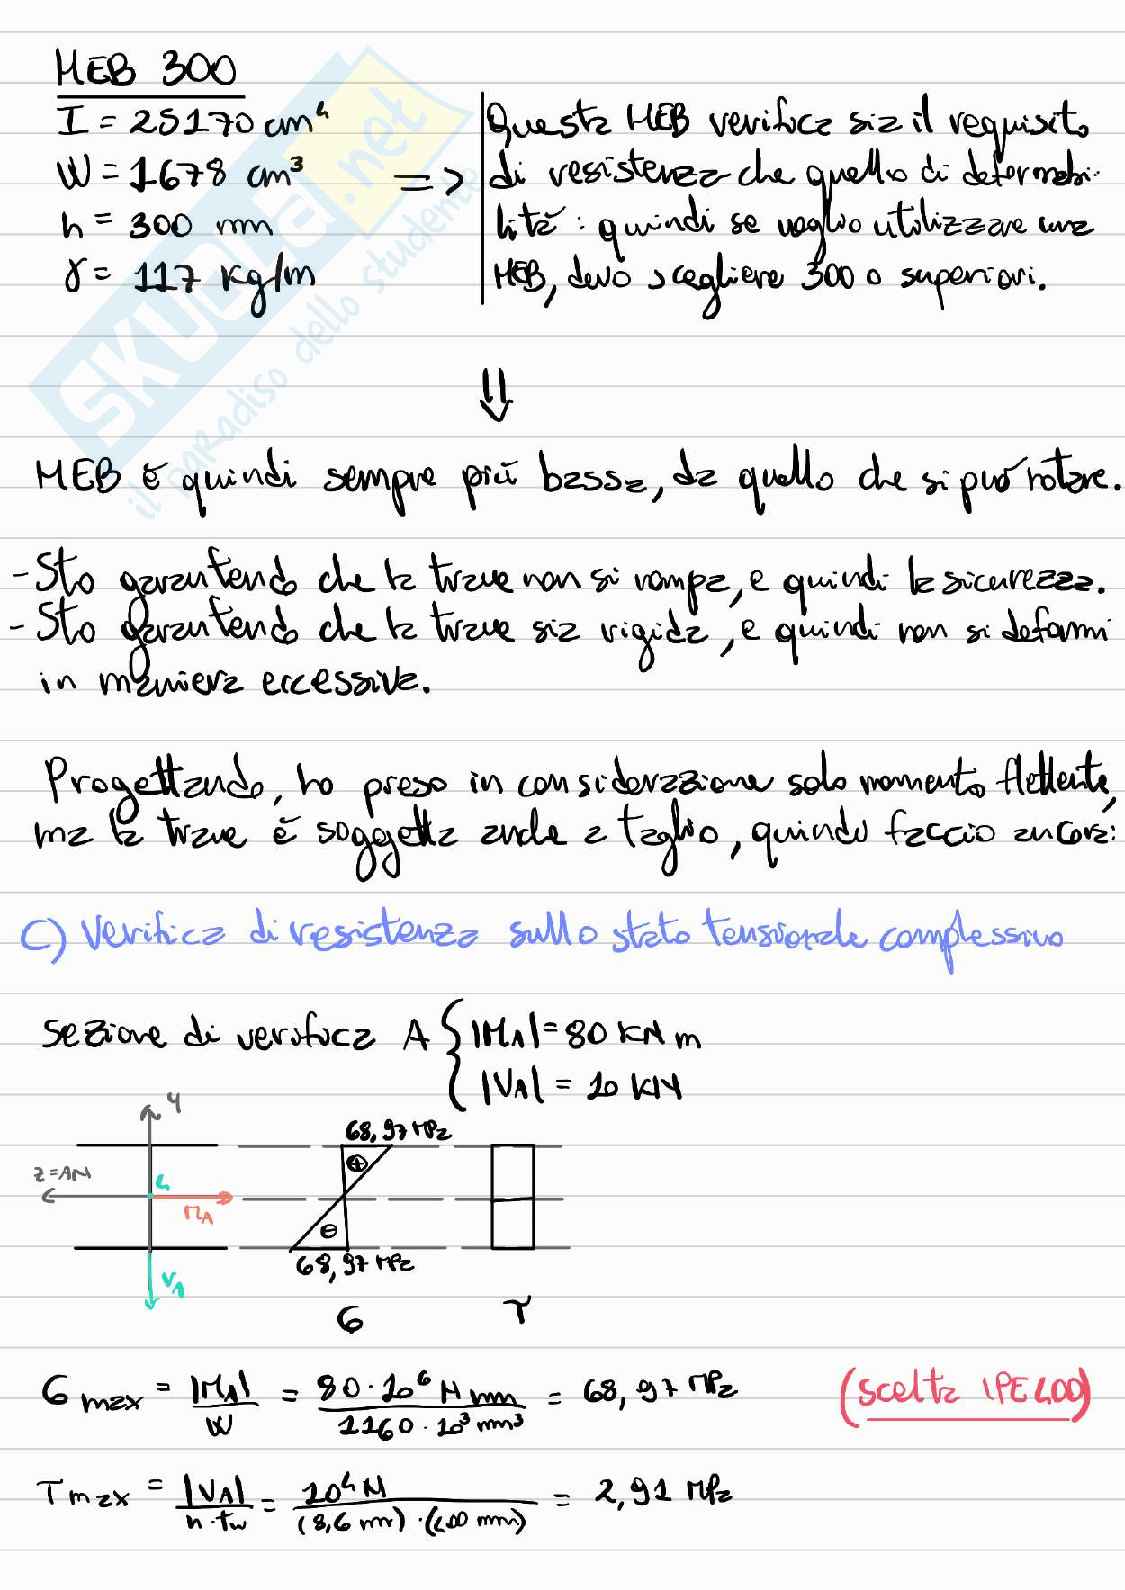 HEB 300
I = 25170 cm⁴
W = 1678 cm³
h = 300 mm
γ = 117 kg/m
=> Questa HEB verifica sia il requisito
di resistenza che quello di deformabi-
lità: quindi se voglio utilizzare una
HEB, devo scegliere 300 o superiori.
⇓
HEB è quindi sempre più bassa, da quello che si può notare.
- Sto garantendo che la trave non si rompa, e quindi la sicurezza.
- Sto garantendo che la trave sia rigida, e quindi non si deformi
in maniera eccessiva.
Progettando, ho preso in considerazione solo momento flettente,
ma la trave è soggetta anche a taglio, quindi faccio ancora:
C) Verifica di resistenza sullo stato tensionale complessivo
Sezione di verifica A { |MA| = 80 kN m
|VA| = 10 kN
y
68,97 MPa
z=AN
G
⊕
MA
⊖
68,97 MPa
VA
σ
τ
σmax = |MA| / W = 80·10⁶ N mm / 1160·10³ mm³ = 68,97 MPa
(scelta IPE400)
τmax = |VA| / h·tw = 10⁴ N / (8,6 mm)·(400 mm) = 2,91 MPa
SKUOLA.net
il paradiso dello studente